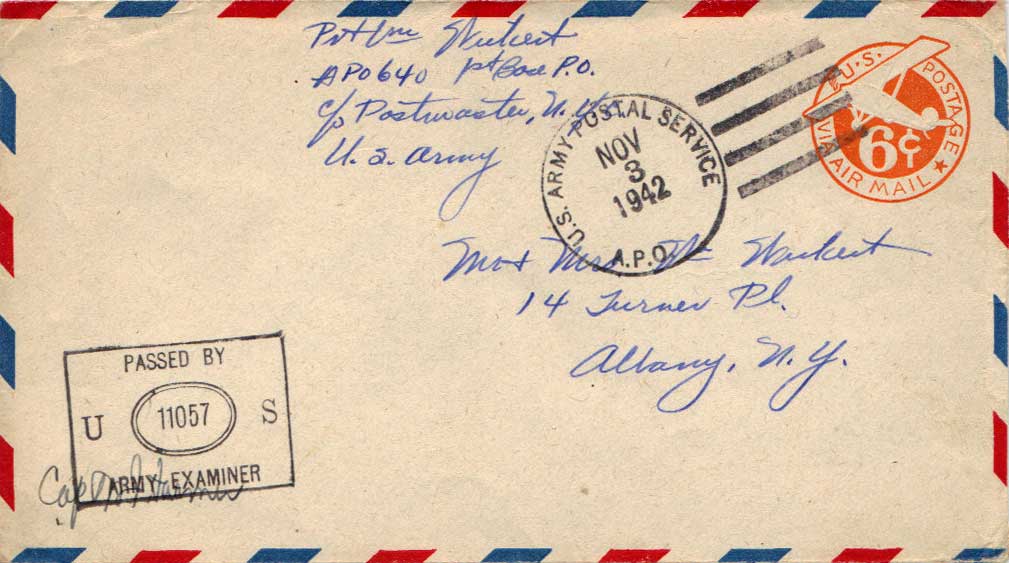 Pvt Wm Weikert
APO 640 1st Base P.O.
c/o Postmaster, N.Y.
U.S. Army
U.S. ARMY POSTAL SERVICE
NOV
3
1942
A.P.O.
U.S. POSTAGE
6¢
VIA AIR MAIL
Mr + Mrs. Wm Weikert
14 Turner Pl.
Albany, N.Y.
PASSED BY
U 11057 S
ARMY EXAMINER
Capt